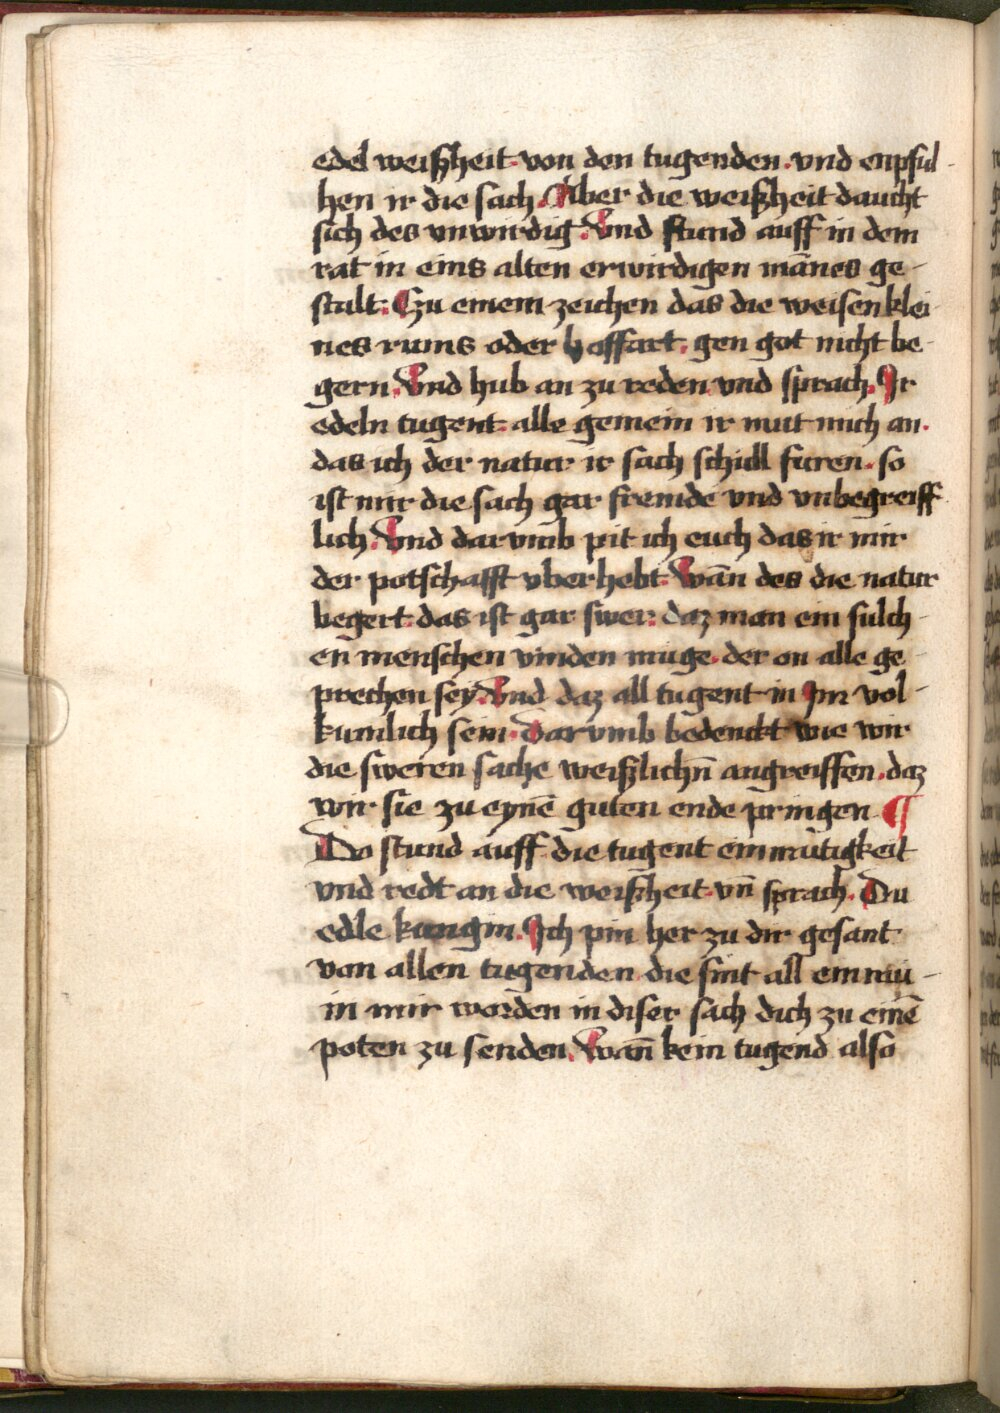 edel weiſzheit von den tugenden. vnd enpful-
hen ir die ſach. Aber die weiſzheit daucht
ſich des vnwirdig. Vnd ſtund auff in dem
rat in eins alten erwirdigen mānes ge-
ſtalt. Czu einem zeichen das die weiſen klei-
nes rums oder hoffart. gen got nicht be-
gern. Vnd hub an zu reden vnd ſprach. Ir
edeln tugent alle gemein ir mut mich an.
das ich der natur ir ſach ſchull furen. ſo
iſt mir die ſach gar fremde vnd vnbegreiff-
lich. Vnd darvmb pit ich euch das ir mir
der potſchafft vberhebt. Wān des die natur
begert. das iſt gar ſwer. daz man ein ſulch-
en menſchen vinden muge. der on alle ge-
prechen ſey. Vnd daz all tugent in Im vol-
kumlich ſein. Darvmb bedenckt wie wir
die ſweren ſache weiſzlichn̄ angreiffen. daz
wir ſie zu eynē guten ende pringen ¶
Do ſtund auff die tugent einmutigkeit
vnd redt an die weiſzheit. vn̄ ſprach. Du
edle kungin. Ich pin her zu dir geſant
von allen tugenden die ſint all einmu-
in mir worden in diſer ſach dich zu einē
poten zu ſenden. Wan̄ kein tugend alſo